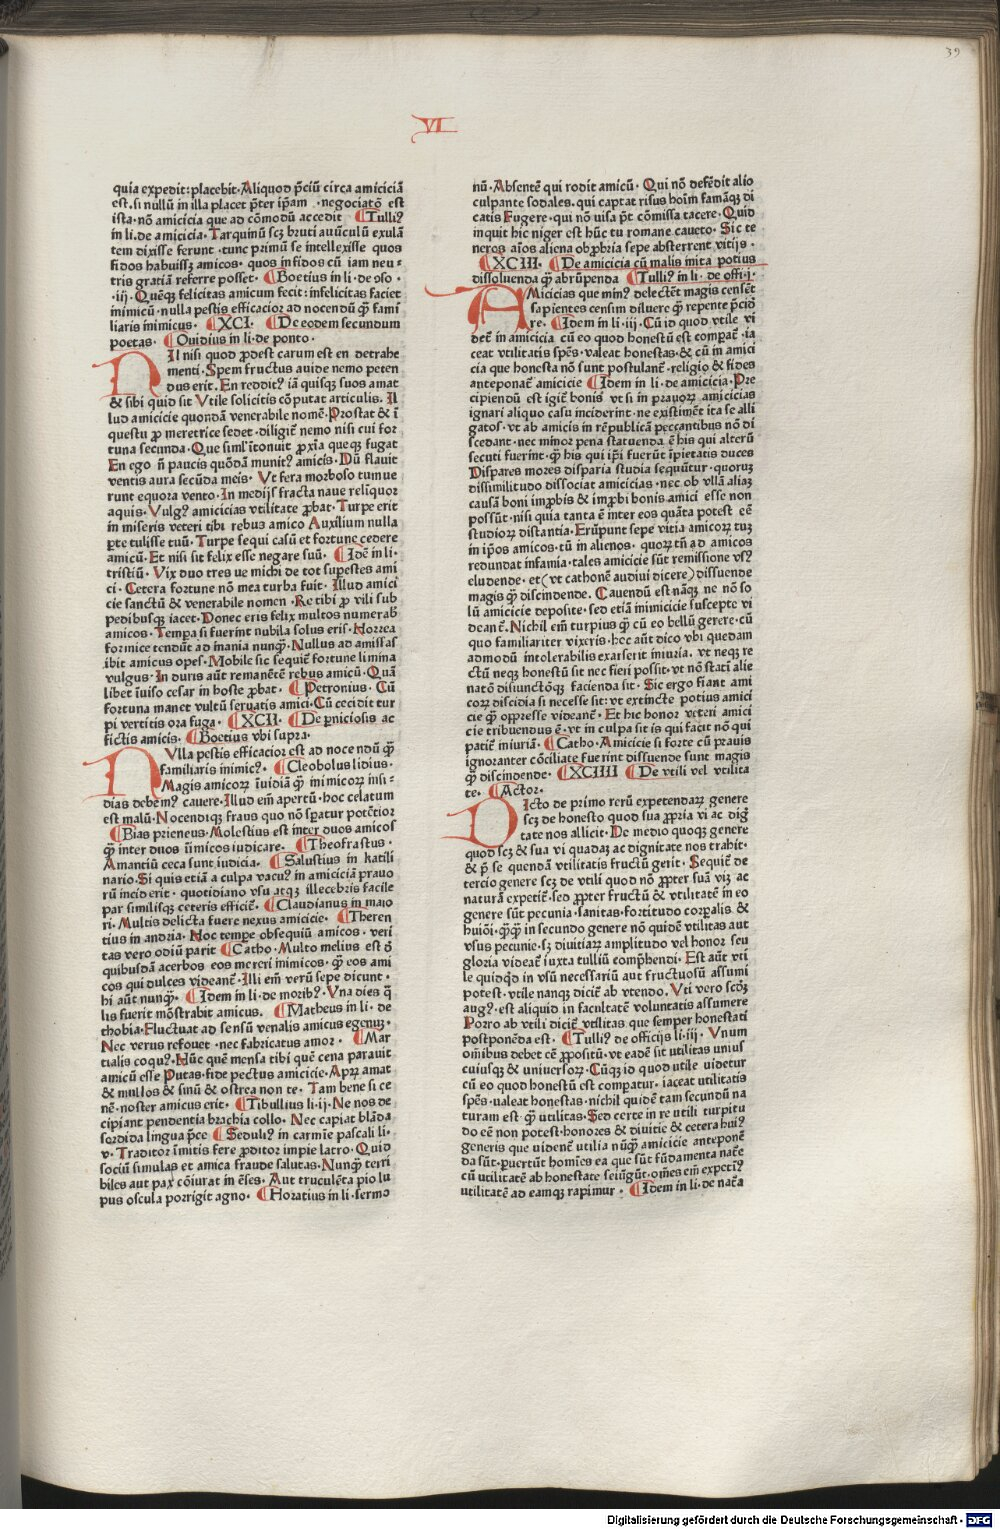 39
VI
quia expedit:placebit.Aliquod p̄ciū circa amiciciā
est.si nullū in illa placet p̄ter ip̄am .negociatō est
ista.nō amicicia que ad cōmodū accedit ¶Tulliꝰ
in li.de amicicia.Tarquinū scꝫ bruti auūculū exulā
tem dixisse ferunt.tunc primū se intellexisse quos
fidos habuissꝫ amicos.quos infidos cū iam neu⸗
tris gratiā referre posset. ¶Boetius in li.de ↄso.
.iij.Quēqꝫ felicitas amicum fecit:infelicitas faciet
inimicū.nulla pestis efficacior ad nocendū qꝫ̄ fami
liaris inimicus. ¶XCI. ¶De eodem secundum
poetas. ¶Ouidius in li.de ponto.
NIl nisi quod ꝓdest carum est en detrahe
menti.Spem fructus auide nemo peten
dus erit.En redditꝰ iā quisqꝫ suos amat
& sibi quid sit Vtile solicitis cōputat articulis.Il
lud amicicie quondā venerabile nomē.Prostat & ī
questu ꝓ meretrice sedet.diligit̄ nemo nisi cui for
tuna secunda.Que siml̓ītonuit ꝓxīa queqꝫ fugat
En ego n̄ paucis quōdā munitꝰ amicis.Dū flauit
ventis aura secūda meis.Vt fera morboso tumue
runt equora vento.In medijs fracta naue relīquor
aquis.Vulgꝰ amicicias vtilitate ꝓbat.Turpe erit
in miseris veteri tibi rebus amico Auxilium nulla
ꝑte tulisse tuū.Turpe sequi casū et fortune cedere
amicū.Et nisi sit felix esse negare suū. ¶Idē in li.
tristiū.Vix duo tres ue michi de tot sup̄estes ami
ci.Cetera fortune nō mea turba fuit.Illud amici
cie sanctū & venerabile nomen.Re tibi ꝓ vili sub
pedibusqꝫ iacet.Donec eris felix multos numerab̄
amicos.Tempꝰa si fuerint nubila solus eris.Horrea
formice tendūt ad inania nunqꝫ̄.Nullus ad amissas
ibit amicus opes.Mobile sic sequit̄ fortune limina
vulgus.In duris aūt remanētē rebus amicū.Quā
libet īuiso cesar in hoste ꝓbat. ¶Petronius.Cū
fortuna manet vultū seruatis amici.Cū cecidit tur
pi vertitis ora fuga. ¶XCII. ¶De ꝑniciosis ac
fictis amicis. ¶Boetius vbi supra.
NVlla pestis efficacior est ad noce ndū qꝫ̄
familiaris inimicꝰ. ¶Cleobolus lidius.
Magis amicoꝝ īuidiā qꝫ̄ inimicoꝝ insi⸗
dias debemꝰ cauere.Illud em̄ apertū.hoc celatum
est malū.Nocendiqꝫ fraus quo nō sꝑatur potētior
¶Bias prieneus.Molestius est inter duos amicos
qꝫ̄ inter duos īimicos iudicare. ¶Theofrastus.
Amantiū ceca sunt iudicia. ¶Salustius in katili
nario.Si quis etiā a culpa vacuꝰ in amiciciā prauo
rū incid erit.quotidiano vsu atqꝫ illecebris facile
par similisqꝫ ceteris efficit̄. ¶Claudianus in maio
ri.Multis delicta fuere nexus amicicie. ¶Theren
tius in andria.Hoc tempe obsequiū amicos.veri
tas vero odiū parit ¶Catho.Multo melius est q̄
quibusdā acerbos eos mereri inimicos.qꝫ̄ eos ami
cos qui dulces videant̄.Illi em̄ verū sepe dicunt.
hi aūt nunqꝫ̄. ¶Idem in li.de moribꝰ.Vna dies q̄
lis fuerit mōstrabit amicus. ¶Matheus in li.de
thobia.Fluctuat ad sensū venalis amicus egenꝰ.
Nec verus refouet.nec fabricatus amor. ¶Mar
tialis coquꝰ.Hūc quē mensa tibi quē cena parauit
amicū esse Putas.fide pectus amicicie.Apꝝ amat
& mullos & sinū & ostrea non te.Tam bene si ce
nē.noster amicus erit. ¶Tibullius li.ij.Ne nos de
cipiant pendentia brachia collo.Nec capiat blāda
sordida lingua p̄ce ¶Seduliꝰ in carmīe pascali li.
v.Traditor īmitis fere ꝓditor impie latro.Quid
sociū simulas et amica fraude salutas.Nunqꝫ̄ terri
biles aut pax cōiurat in ēses.Aut truculēta pio lu
pus oscula porrigit agno. ¶Horatius in li.sermo
nū.Absentē qui rodit amicū.Qui nō defēdit alio
culpante sodales.qui captat risus hoīm famāqꝫ di
catis Fugere.qui nō visa p̄t cōmissa tacere.Quid
inquit hic niger est hūc tu romane caueto.Sic te
neros aīos aliena obꝓbria sepe absterrent vitijs.
¶XCIII. ¶De amicicia cū malis inita potius
dissoluenda qꝫ̄ abrūpenda ¶Tulliꝰ in li.de offi.i.
AMicicias que minꝰ delectēt magis censēt
sapientes censim diluere qꝫ̄ repente p̄cidͦ
re. ¶Idem in li.iij.Cū id quod vtile vi
det̄ in amicicia cū eo quod honestū est compat̄.ia
ceat vtilitatis spēs.valeat honestas.& cū in amici
cia que honesta nō sunt postulant̄.religio & fides
anteponat̄ amicicie ¶Idem in li.de amicicia.Pre
cipiendū est igit̄ bonis vt si in prauoꝝ amicicias
ignari aliquo casu inciderint.ne existiment ita se alli
gatos.vt ab amicis in rēpublicā peccantibus nō di
scedant.nec minor pena statuenda ē his qui alterū
secuti fuerint.qꝫ̄ his qui ip̄i fuerūt īpietatis duces
Dispares mores disparia studia sequūtur.quoꝝ
dissimilitudo dissociat amicicias.nec ob vllā aliaꝫ
causā boni improbis & improbi bonis amici esse non
possūt.nisi quia tanta ē inter eos quāta potest eē
studioꝝ distantia.Erūpunt sepe vitia amicoꝝ tuꝫ
in ip̄os amicos.tū in alienos.quoꝝ tn̄ ad amicos
redundat infamia.tales amicicie sūt remissione vsꝰ
eludende.et(vt cathonē audiui dicere)dissuende
magis qꝫ̄ discindende.Cauendū est nāqꝫ ne nō so
lū amicicie deposite.sed etiā inimicicie suscepte vi
deant̄.Nichil em̄ turpius qꝫ̄ cū eo bellū gerere.cū
quo familiariter vixeris.hec aūt dico vbi quedam
admodū intolerabilis exarserit iniuria.vt neqꝫ re
ctū neqꝫ honestū sit nec fieri possit.vt nō stati alie
natō disiunctōqꝫ facienda sit.Sic ergo fiant ami
coꝝ discidia si necesse sit:vt extincte potius amici
cie qꝫ̄ oppresse videant̄.Et hic honor veteri amici
cie tribuendus ē.vt in culpa sit is qui facit nō qui
patit̄ iniuriā. ¶Catho.Amicicie si forte cū prauis
ignoranter cōciliate fuerint dissuende sunt magis
qꝫ̄ discindende. ¶XCIIII ¶De vtili vel vtilita
te. ¶Actor.
DIcto de primo rerū expetendaꝝ genere
scꝫ de honesto quod sua ꝓpria vi ac dig
tate nos allicit.De medio quoqꝫ genere
quod scꝫ & sua vi quadaꝫ ac dignitate nos trahit.
& p̄ se quendā vtilitatis fructū gerit.Sequit̄ de
tercio genere scꝫ de vtili quod nō ꝓpter suā viꝫ ac
naturā expetit̄.sed ꝓpter fructū & vtilitatē in eo
genere sūt pecunia.sanitas.fortitudo corꝑalis &
huiōi.qꝫ̄qꝫ̄ in secundo genere nō quidē vtilitas aut
vsus pecunie.sꝫ diuitiarꝫ amplitudo vel honor seu
gloria videat̄ iuxta tulliū comp̄hendi.Est aūt vti
le quidqͥd in vsū necessariū aut fructuosū assumi
potest.vtile nanqꝫ dicit̄ ab vtendo.Vti vero scd̄ꝫ
augꝰ.est aliquid in facultatē voluntatis assumere
Porro ab vtili dicit̄ vtilitas que semper honestati
postponēda est. ¶Tulliꝰ de officijs li.iij.Vnum
om̄ibus debet eē ꝓpositū.vt eadē sit vtilitas unius
cuiusqꝫ & uniuersoꝝ.Cūqꝫ id quod utile uidetur
cū eo quod honestū est compatur.iaceat utilitatis
spēs.ualeat honestas.nichil quidē tam secundū na
turam est qꝫ̄ utilitas.Sed certe in re utili turpitu
do eē non potest.honores & diuitie & cetera huiꝰ
generis que uident̄ utilia nūqꝫ̄ amicicie anteponē
da sūt.ꝑuertūt homīes ea que sūt fūdamenta nat̄e
cū utilitatē ab honestate seiūgūt.om̄es em̄ expetīꝰ
utilitatē ad eamqꝫ rapimur. ¶Idem in li.de nat̄a
Digitalisierung gefördert durch die Deutsche Forschungsgemeinschaft - DFG